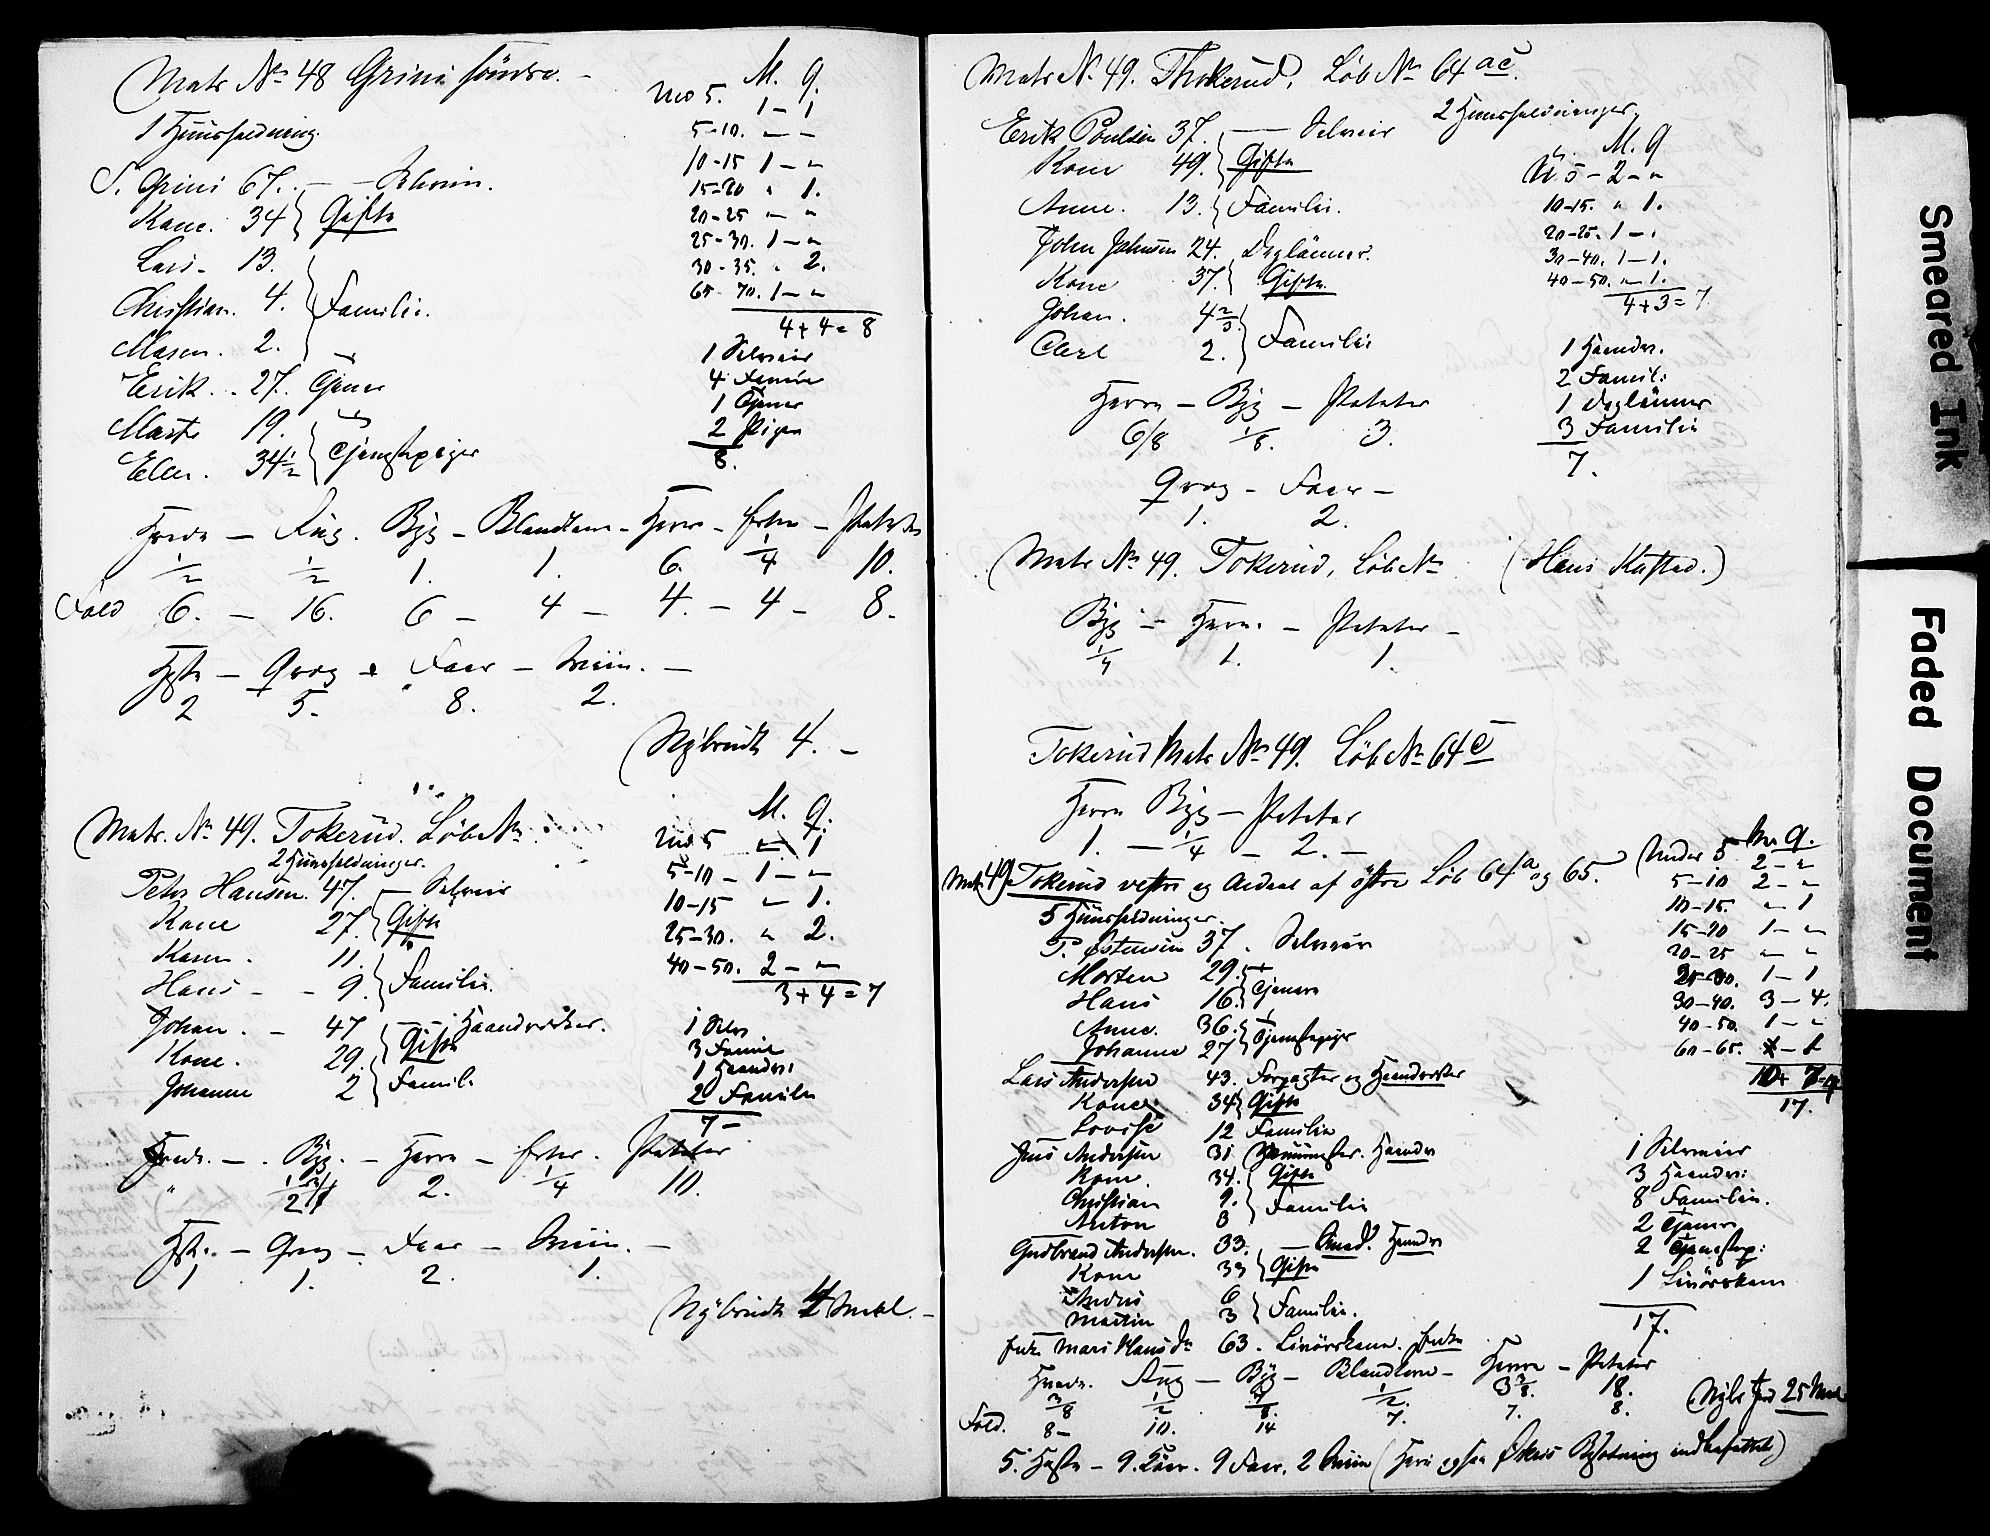 Matr No 48 Grini söndre. -
M. Q.
1 Huusholdning
Und 5. 1 - 1
5-10. " - "
10-15 1 - "
15-20 " 1.
20-25 " - "
25-30. 1 - "
30-35. " 2.
65-70. 1 - "
4 + 4 = 8
S. Grini 67. - - Selveier.
Kone. 34 Gifte
Lars - 13.
Christian. 4. Familie.
Maren. 2.
Erik. . 27. Tjener
Marte 19.
Ellen. 34 1/2 Tjenestepiger
1 Selveier
4 Familie
1 Tjener
2 Piger
8.
Hvede - Rug. Byg - Blandkorn - Havre - Erter - Poteter
1/2 1/2 1. 1. 6. 1/4 10.
Fold 6. - 16. 6 - 4 - 4. - 4 - 8.
Heste - Qvæg - Faar - Sviin. -
2 5. 8. 2.
Nybrudt 4. -
Matr. No 49. Tokerud. Löb No
M. Q.
2 Huusholdninger.
Und 5 " 1
5-10 - 1 - "
10-15 " 1.
25-30. " 2.
40-50. 2 - "
3 + 4 = 7
Peter Hansen. 47. - Selveier
Kone 27. Gifte
Karen. 11.
Hans - - 9. Familie.
Johan. - 47 - Haandverker.
Kone. 29. Gifte
Johanne 2 Famil.
1 Selv
3 Famil
1 Haandv:
2 Familie
7 -
Hvede. - . Byg. - Havre - Erter. Poteter
" 1/2 2. 1/4 10.
Heste. - Qvæg - Faar - Sviin. -
1 1. 2. 1.
Nybrudt 4 Maal. -
Matr N. 49. Thokerud, Löb No 64 ac.
2 Huusholdninger.
Erik Poulsen 37. - Selveier
Kone 49. Gifte
Anne. 13. Familie.
John Johnsen 24. Daglönner.
Kone 37. Gifte
Johan. 4 2/3
Carl 2. Familie
M. Q
U. 5 - 2 - "
10-15. " 1.
20-25. 1 - "
30-40. 1 - 1.
40-50. " - 1.
4 + 3 = 7.
1 Haandv.
2 Famil:
1 Daglönner
3 Familie
7.
Havre - Byg - Poteter
6/8 1/8. 3.
Qvæg - Faar -
1. 2.
Matr No 49. Tokerud, Löb No (Hans Kastad.)
Byg - Havre. - Poteter -
1/4 1. 1.
Tokerud Matr No 49. Löb No 64 c
Havre Byg - Poteter
1. - 1/4 - 2. -
Matr 49. Tokerud vestre og Andeel af östre Löb 64 a og 65.
5 Huusholdninger.
M. Q.
Under 5 2 - "
5-10 2 - "
10-15. " - 1
15-20 1 - "
20-25 " "
25-30. 1 - 1
30-40. 3 - 4.
40-50. 1 - "
60-65. - 1
10 + 7 = 17
17.
P. Östensen 37. Selveier
Morten 29.
Hans 16. Tjenere
Anne. 36.
Johanne 27 Tjenestepiger
Lars Andersen 43. Forpagter og Haandverker
Kone 34 Gifte
Lovise 12 Familie
Jens Andersen 31. Haandv
Kone. 34. Gifte
Christian 9.
Anton 3 Familie
Gudbrand Andersen. 33. - Smed. Haandv
Kone 33 Gifte
Andres 6
Martin 3 Familie.
Enke Mari Hansdr 63 - Enke
1 Selveier
3 Haandv:
8 Familie.
2 Tjenere
2 Tjenestep:
17.
Hvede. Rug - Byg - Blandkorn - Havre - Poteter
3/8 1/2 1/2. 3 3/8. 18.
Fold. 8 - 10. 14 7. 7. 8.
Nybr jord 25 Maal
5. Heste - 9. Köer. 9 Faar. 2 Sviin (Heri ogsaa Besætning indbefattet)
Smeared Ink
Faded Document